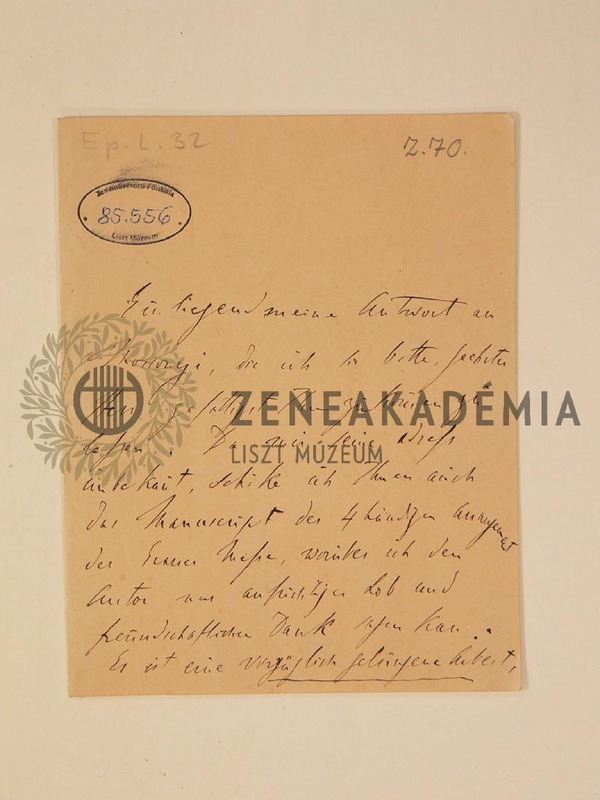 Ep. L. 32
Z.70.
Zeneművészeti Főiskola
85.556
Liszt Múzeum
Einliegend meine Antwort an
Mosonyi, die ich Sie bitte, geehrter
Herr, gefälligst
ZENEAKADÉMIA
lassen. Da mir seine Adress
LISZT MÚZEUM
unbekañt, schike ich Ihnen auch
das Manuscript des 4händigen Arrangement
der Graner Messe, worüber ich dem
Autor nur aufrichtiges Lob und
freundschaftlichen Dank sagen kañ.
Es ist eine vorzüglich gelungene Arbeit,